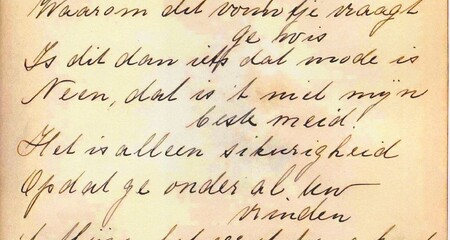 Waarom dit vormtje vraagt
ge wis
Is dit dan iets dat mode is
Neen, dat is 't niet mijn
beste meid.
Het is alleen sikurigheid
Opdat ge onder al uw
vrinden